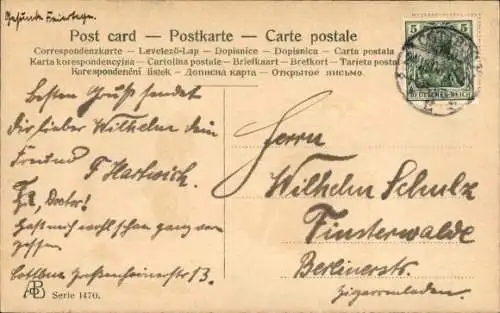 Gesunde Feiertage.
Post card – Postkarte – Carte postale
Correspondenzkarte – Levelező-Lap – Dopisnice – Dopisnica – Carta postala
Karta korespondencyjna – Cartolina postale – Briefkaart – Brefkort – Tarjeta postal
Korespondenční lístek – Дописна карта – Открытое письмо.
5 5
DEUTSCHES REICH
Besten Gruß sendet
dir lieber Wilhelm dein
Freund F. Hartwich.
Hast mich wohl schon ganz ver-
gessen
Cottbus Großenhainerstr 13.
Herrn
Wilhelm Schulz
Finsterwalde
Berlinerstr.
Zigarrenladen.
Serie 1470.